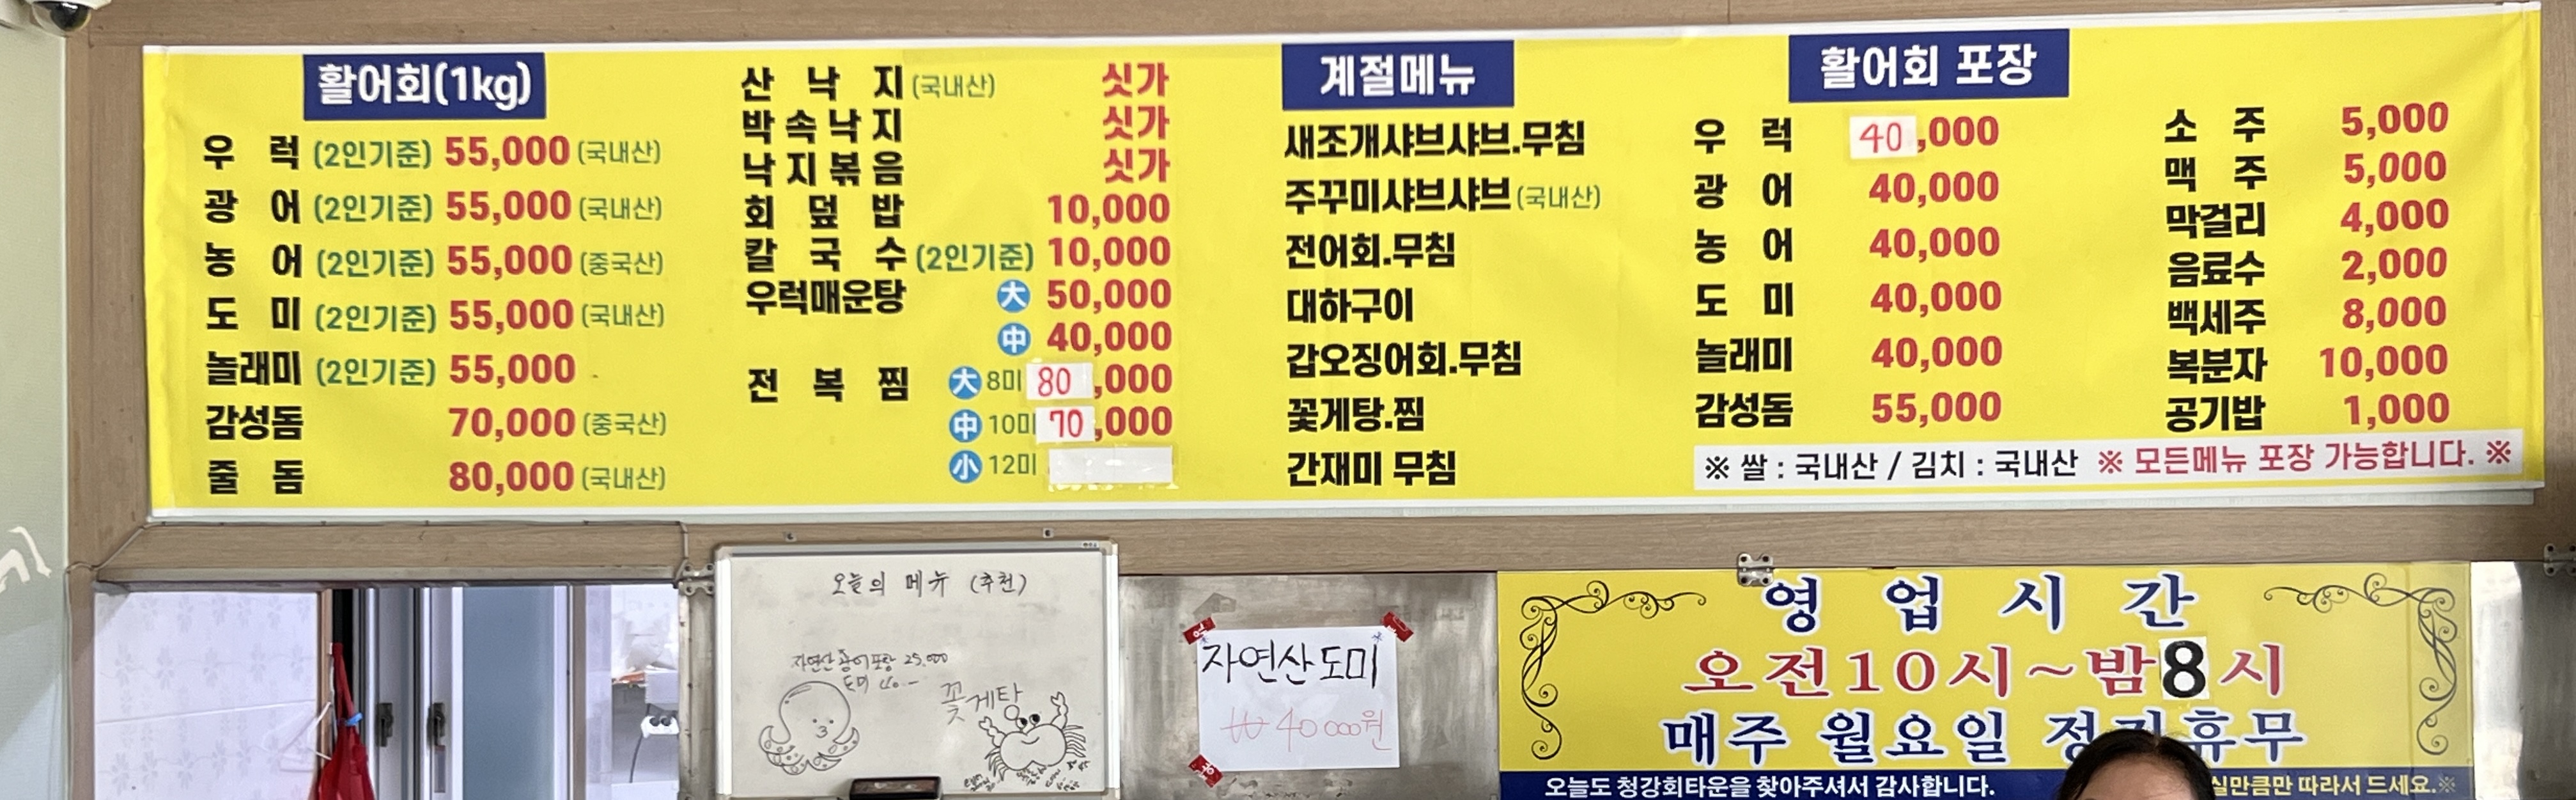 활어회(1kg)
우 럭 (2인기준) 55,000 (국내산)
광 어 (2인기준) 55,000 (국내산)
농 어 (2인기준) 55,000 (중국산)
도 미 (2인기준) 55,000 (국내산)
놀래미 (2인기준) 55,000
감성돔 70,000 (중국산)
줄 돔 80,000 (국내산)
산 낙 지 (국내산) 싯가
박속낙지 싯가
낙지볶음 싯가
회 덮 밥 10,000
칼 국 수 (2인기준) 10,000
우럭매운탕 大 50,000
中 40,000
전 복 찜 大 8미 80,000
中 10미 70,000
小 12미
계절메뉴
새조개샤브샤브.무침
주꾸미샤브샤브 (국내산)
전어회.무침
대하구이
갑오징어회.무침
꽃게탕.찜
간재미 무침
활어회 포장
우 럭 40,000
광 어 40,000
농 어 40,000
도 미 40,000
놀래미 40,000
감성돔 55,000
소 주 5,000
맥 주 5,000
막걸리 4,000
음료수 2,000
백세주 8,000
복분자 10,000
공기밥 1,000
※ 쌀 : 국내산 / 김치 : 국내산 ※ 모든메뉴 포장 가능합니다. ※
오늘의 메뉴 (추천)
자연산 광어 포장 25,000
도미
꽃게탕
자연산 도미
₩40000원
영 업 시 간
오전10시~밤8시
매주 월요일 정기휴무
오늘도 청강회타운을 찾아주셔서 감사합니다.
따라서 드세요.※